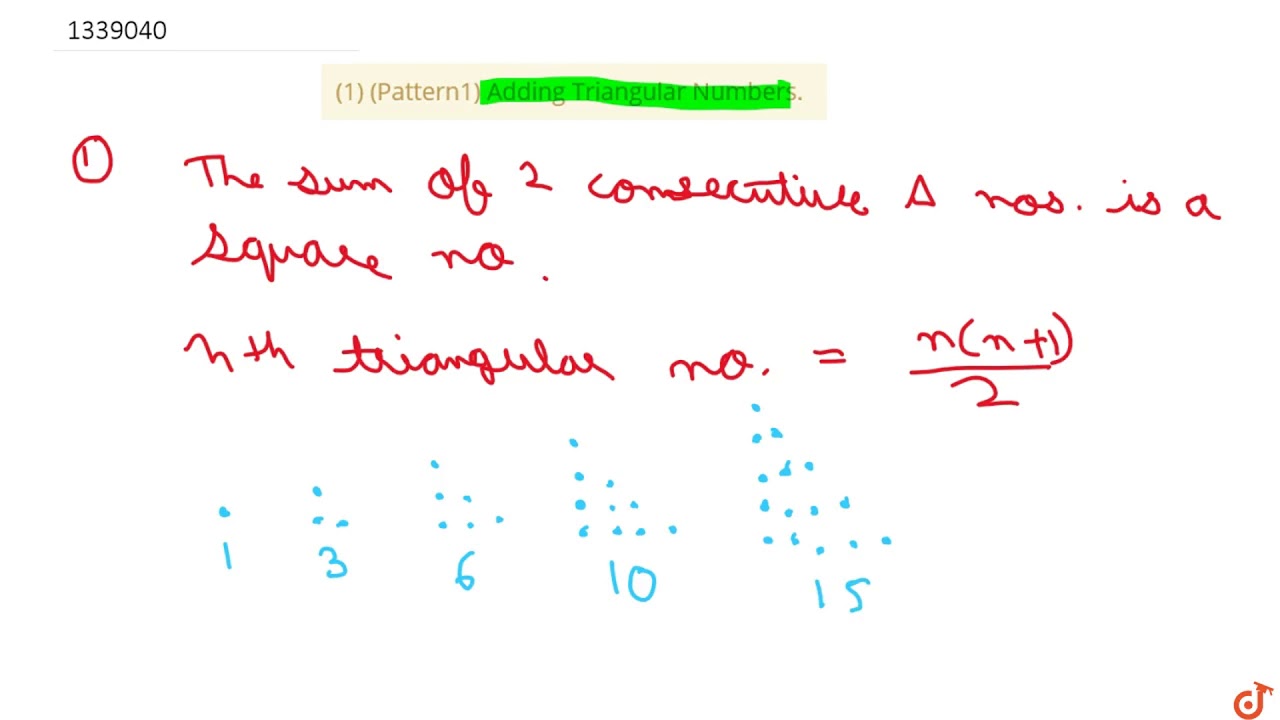 1339040
(1) (Pattern1) Adding Triangular Numbers.
① The sum of 2 consecutive Δ nos. is a
square no.
nth triangular no. = n(n+1)/2
1 3 6 10 15